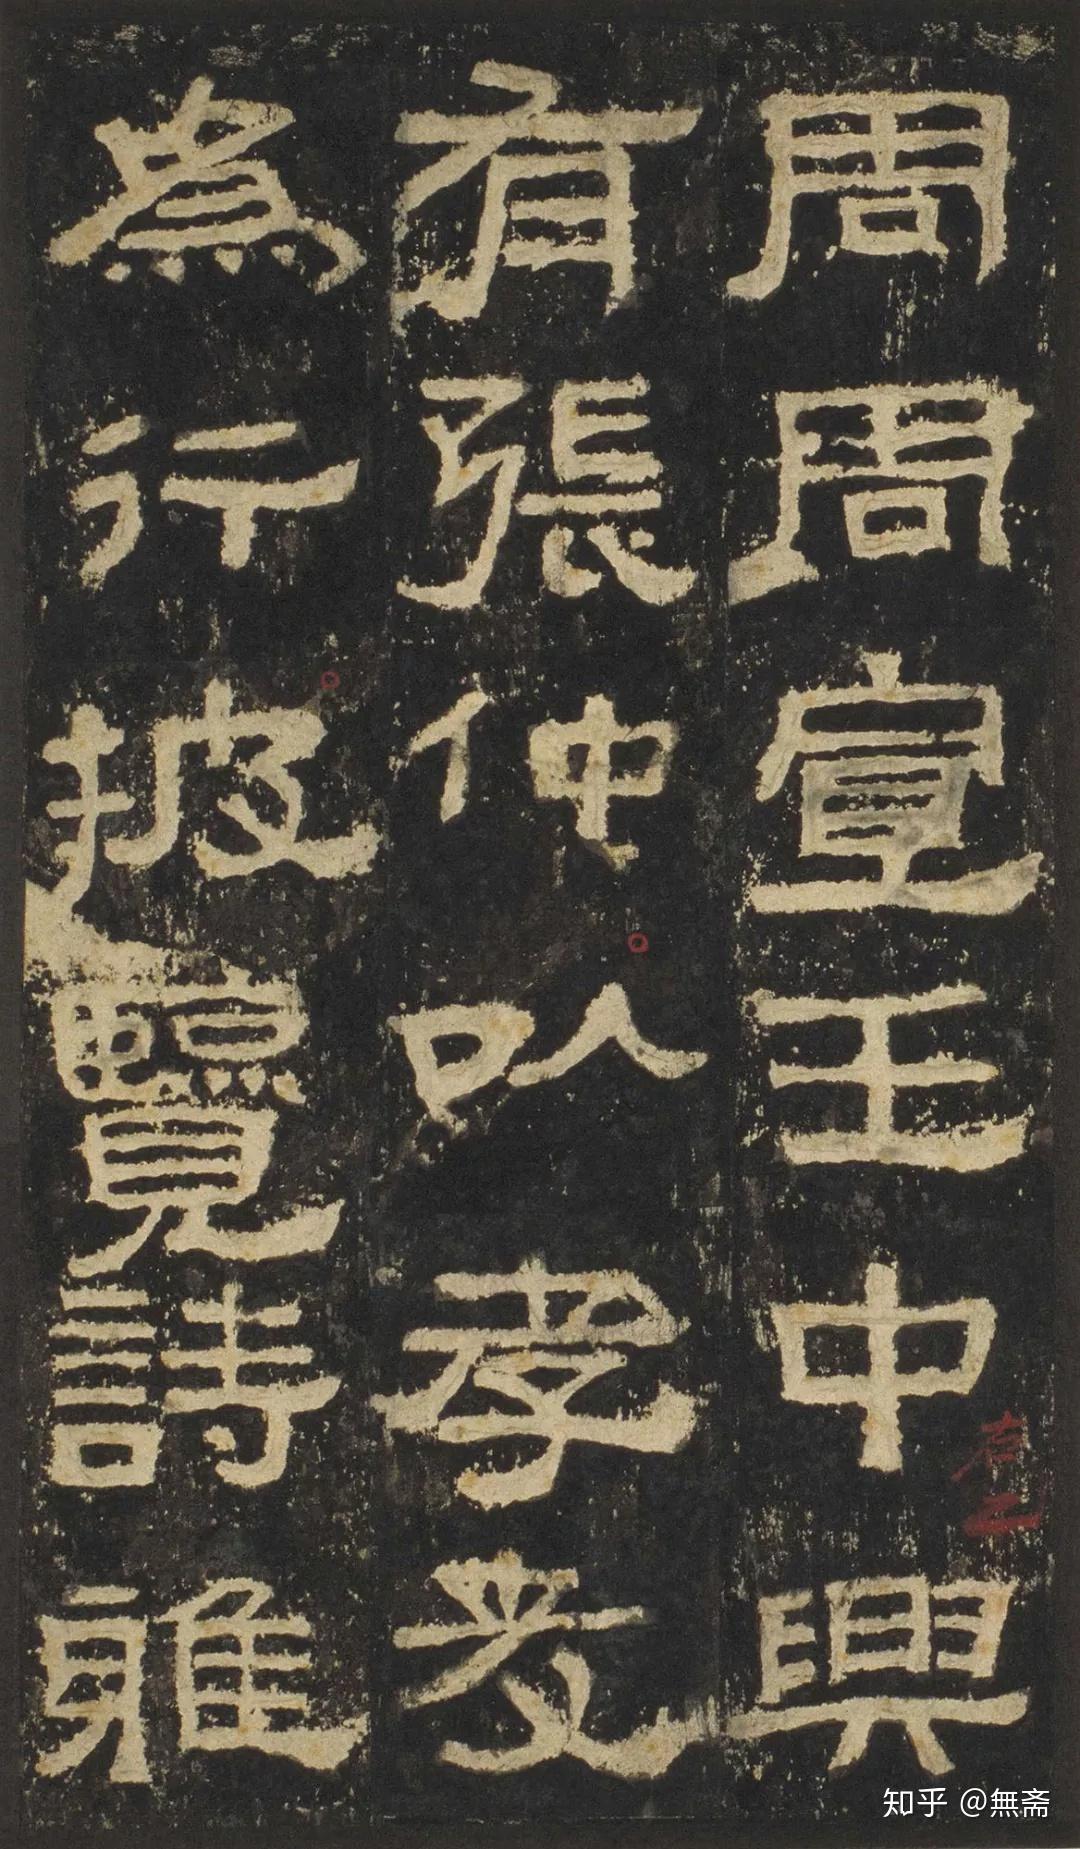 周周宣王中興
有張仲以孝友
為行披覽詩雅
知乎 @無斋